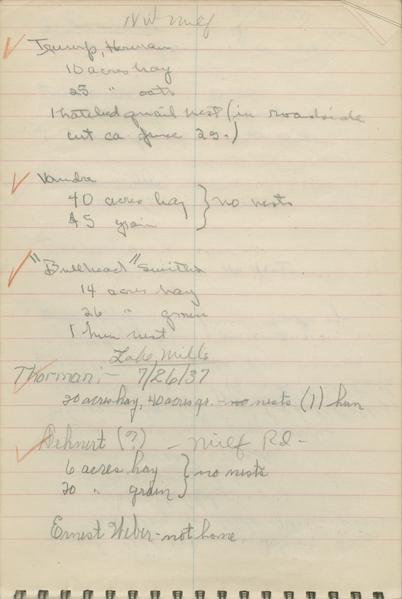 NW Milf
Herman
10 acres hay
25 " oats
1 hatched quail nest (in roadside
cut ca June 25.)
Vandre
40 acres hay } no nests
45 grain
"Bullhead"
14 acres hay
26 " grain
1 hun nest
Lake Mills
Thorman:- 7/26/37
20 acres hay, 40 acres gr. - no nests (1) hun
Dehnert (?) - Milf Rd -
6 acres hay } no nests
20 " grain
Ernest Weber - not home